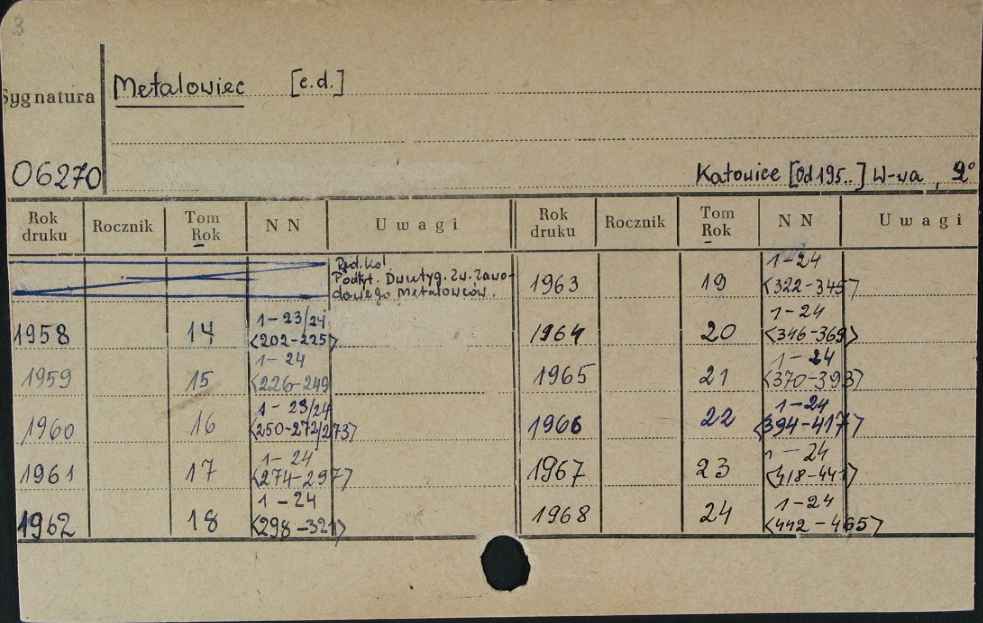 3
Sygnatura
Metalowiec [c.d.]
06270
Katowice [Od 195..] W-wa, 2°
Rok druku Rocznik Tom Rok NN Uwagi Rok druku Rocznik Tom Rok NN Uwagi
Red. Kol.
Podtyt. Dwutyg. Zw. Zawo-
dowego Metalowców.
1958 14 1-23/24 <202-225>
1959 15 1-24 <226-249
1960 16 1-23/24 <250-272/273>
1961 17 1-24 <274-297>
1962 18 1-24 <298-321>
1963 19 1-24 <322-345>
1964 20 1-24 <346-369>
1965 21 1-24 <370-393>
1966 22 1-24 <394-417>
1967 23 1-24 <418-441>
1968 24 1-24 <442-465>